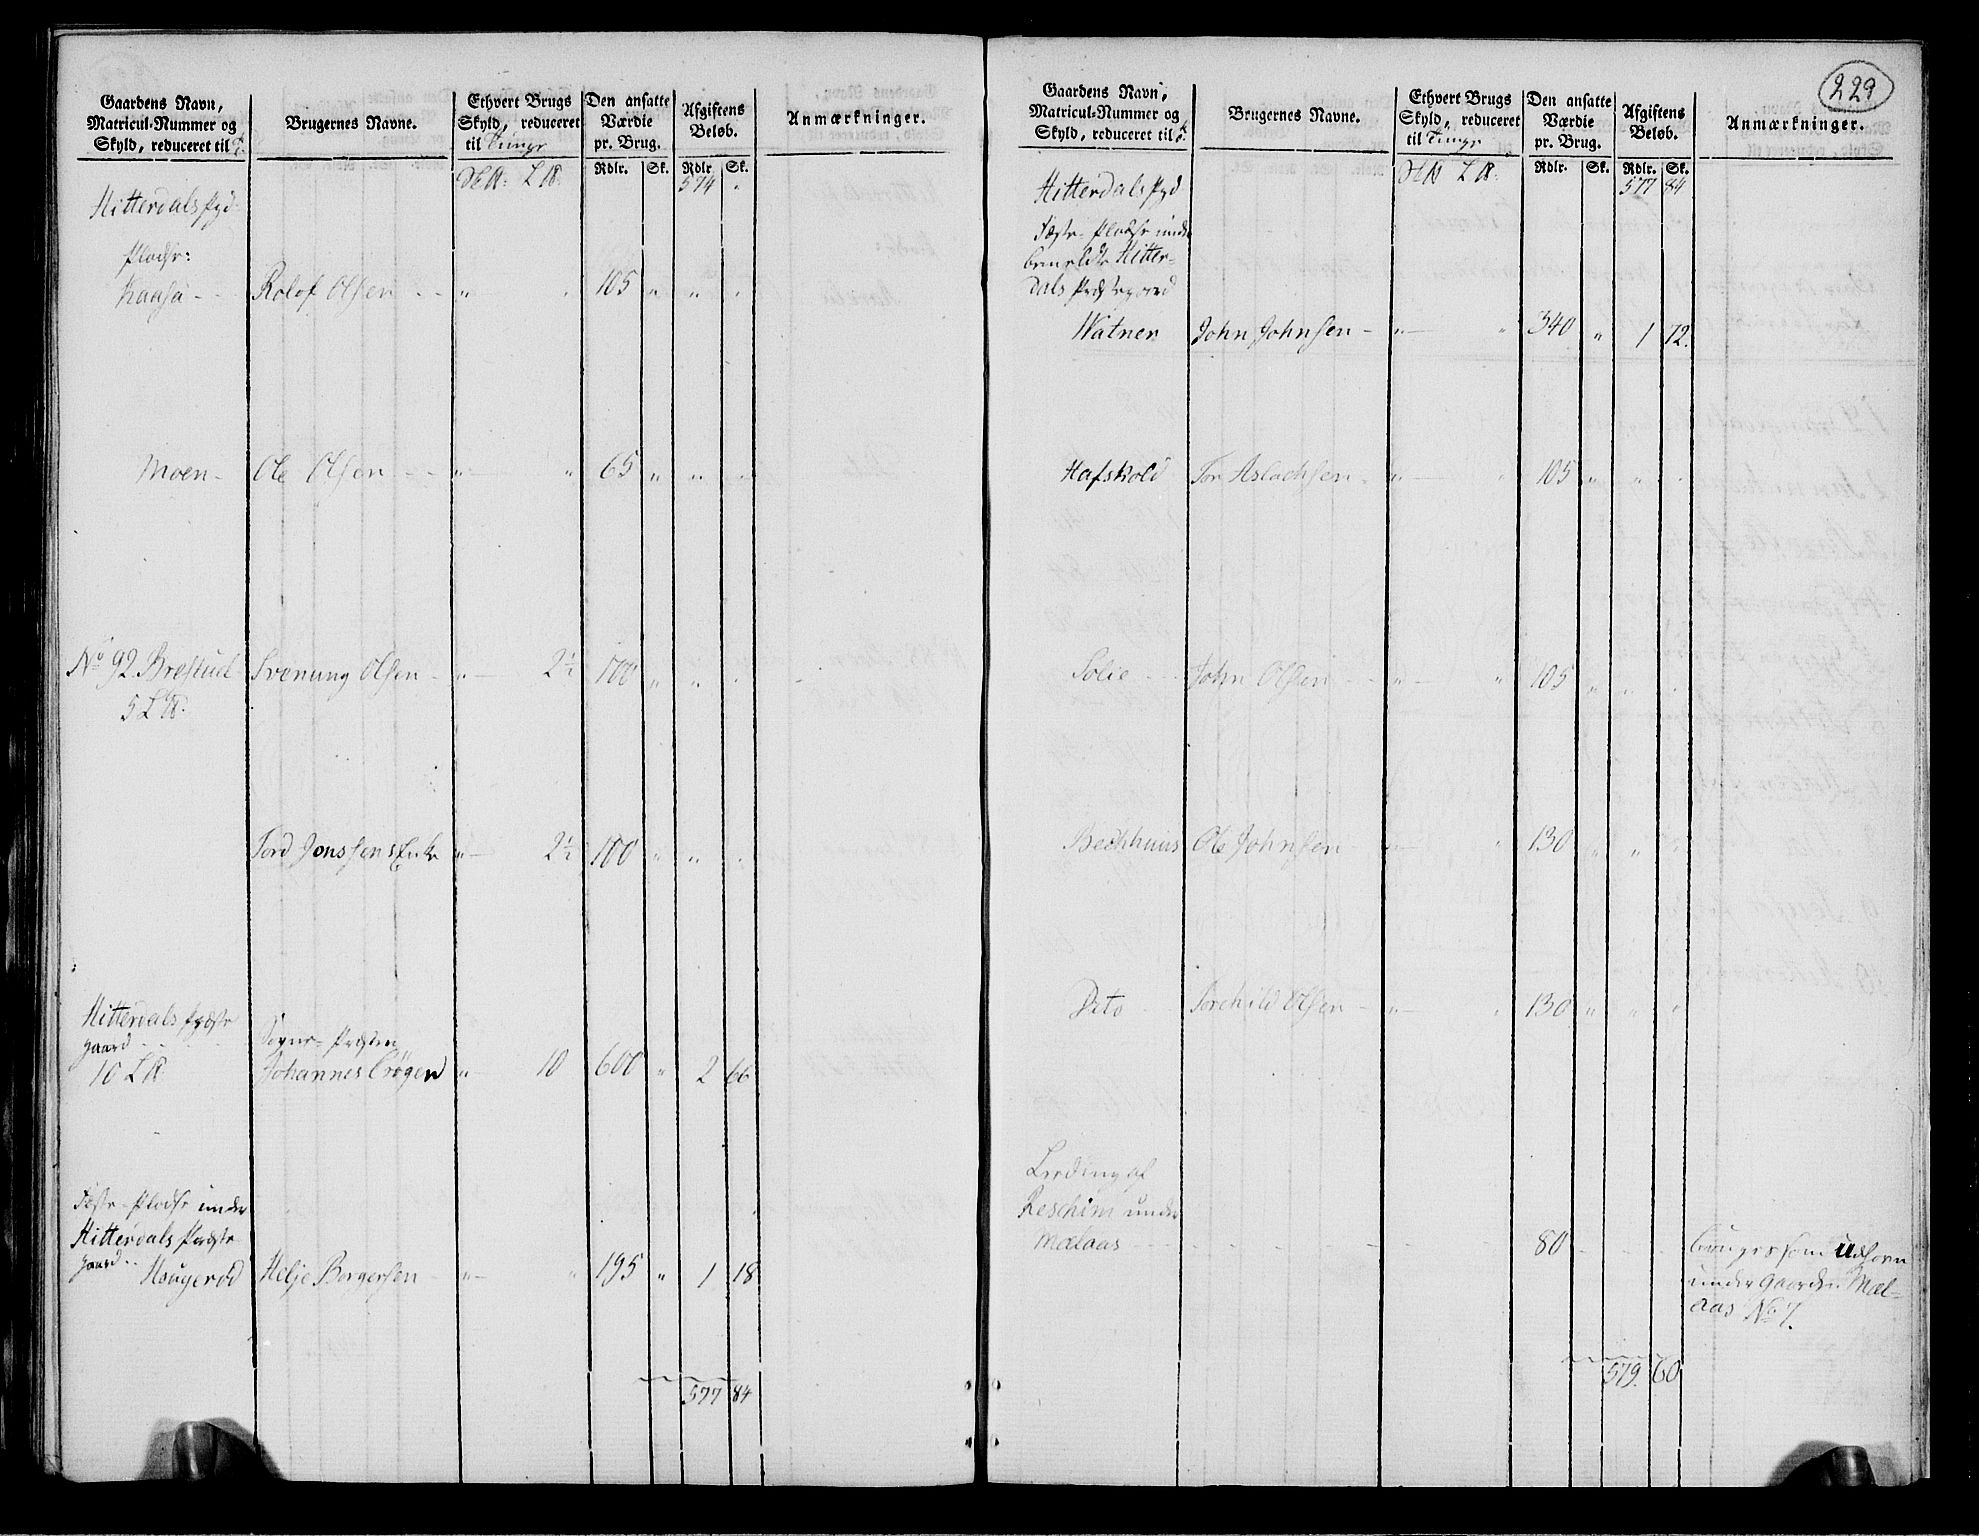 Gaardens Navn,
Matricul-Nummer og
Skyld, reduceret til
Brugernes Navne.
Ethvert Brugs
Skyld, reduceret
til Tunge
Den ansatte
Værdie
pr. Brug.
Afgiftens
Beløb.
Anmærkninger.
Rdlr. Sk. Rdlr. Sk.
574 "
Hitterdals
Pladse:
Kaasa - - Rolof Olsen - - " " 105 " " "
Moen - Ole Olsen - - " " 65 " " "
No 92 Brestuel Svenung Olsen - " 2½ 100 " " "
5 L℔.
Tord Jonssens Enke " 2½ 100 " " "
Hitterdals Præste
gaard - -
10 L℔
Sogne-Præsten
Johannes Crøger " 10 600 " 2 66
Fæste-Pladse under
Hitterdals Præste
gaard - -
Haugerød Helje Borgersen - " " 195 " 1 18
577 84
229
Gaardens Navn,
Matricul-Nummer og
Skyld, reduceret til
Brugernes Navne.
Ethvert Brugs
Skyld, reduceret
til Tunge
Den ansatte
Værdie
pr. Brug.
Afgiftens
Beløb.
Anmærkninger.
Rdlr. Sk. Rdlr. Sk.
577 84
Hitterdals
Fæste-Pladse under
bemeldte Hitter-
dals Præstegaard
Watner John Johnsen - " " 340 " 1 72.
Hafskold Tor Aslachsen - " " 105 " " "
Solie - - John Olsen - - " " 105 " " "
Bechhuus Ole Johnsen - " " 130 " " "
Dito - - Torchild Olsen - " " 130 " " "
Leeding af
Reschim under
Mælaas - - - 80 - - -
bruges som Udhavn
under Gaarden Mæl-
aas No 7.
579. 60